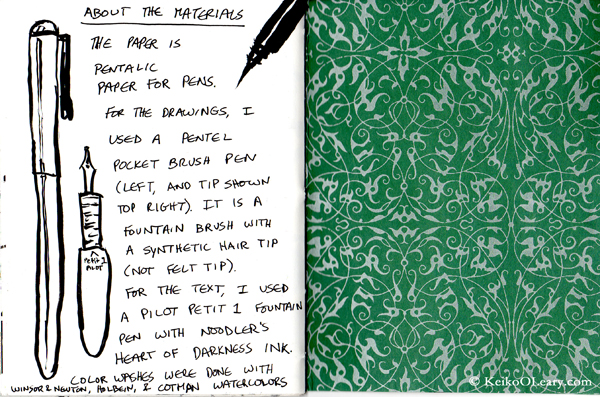 ABOUT THE MATERIALS
THE PAPER IS
PENTALIC
PAPER FOR PENS.
FOR THE DRAWINGS, I
USED A PENTEL
POCKET BRUSH PEN
(LEFT, AND TIP SHOWN
TOP RIGHT). IT IS A
FOUNTAIN BRUSH WITH
A SYNTHETIC HAIR TIP
(NOT FELT TIP).
FOR THE TEXT, I USED
A PILOT PETIT 1 FOUNTAIN
PEN WITH NOODLER'S
HEART OF DARKNESS INK.
COLOR WASHES WERE DONE WITH
WINSOR & NEWTON, HOLBEIN, & COTMAN WATERCOLORS
PETIT 1
PILOT
© KeikoOLeary.com